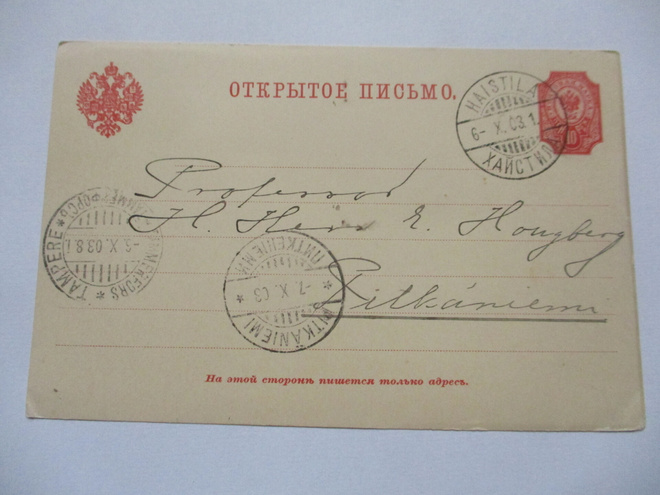 ОТКРЫТОЕ ПИСЬМО.
HAISTILA
6- X. 03. 1.
ХАЙСТИЛА
10
Professor
H. Herr E. Hougberg
Pitkäniemi
TAMPERE * TAMMERFORS *
ТАММЕРФОРСЪ
-6. X. 03. 8 I.
ПИТКЕНІЕМИ
* -7. X. 03 *
PITKÄNIEMI
На этой сторонѣ пишется только адресъ.